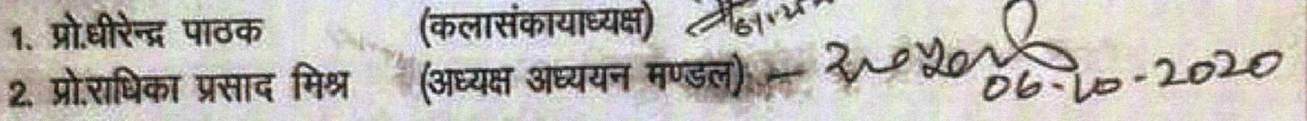 1. प्रो.धीरेन्द्र पाठक (कलासंकायाध्यक्ष)
2. प्रो.राधिका प्रसाद मिश्र (अध्यक्ष अध्ययन मण्डल) - 06-10-2020